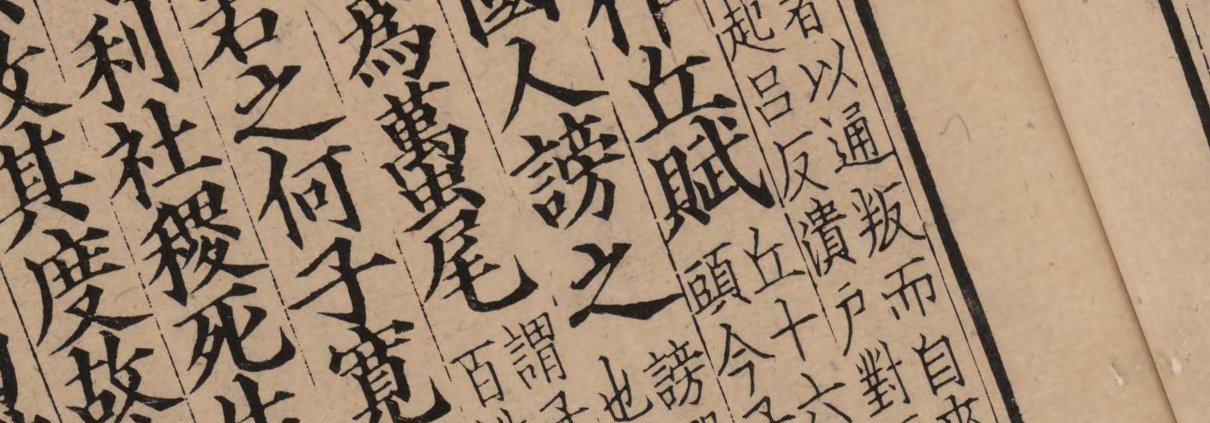 以通叛而自來
起呂反潰戶對
作丘賦
丘十六
頭今子
國人謗之
謗
也
為蠆尾
謂子
百
若之何子寬
利社稷死生
改其度故